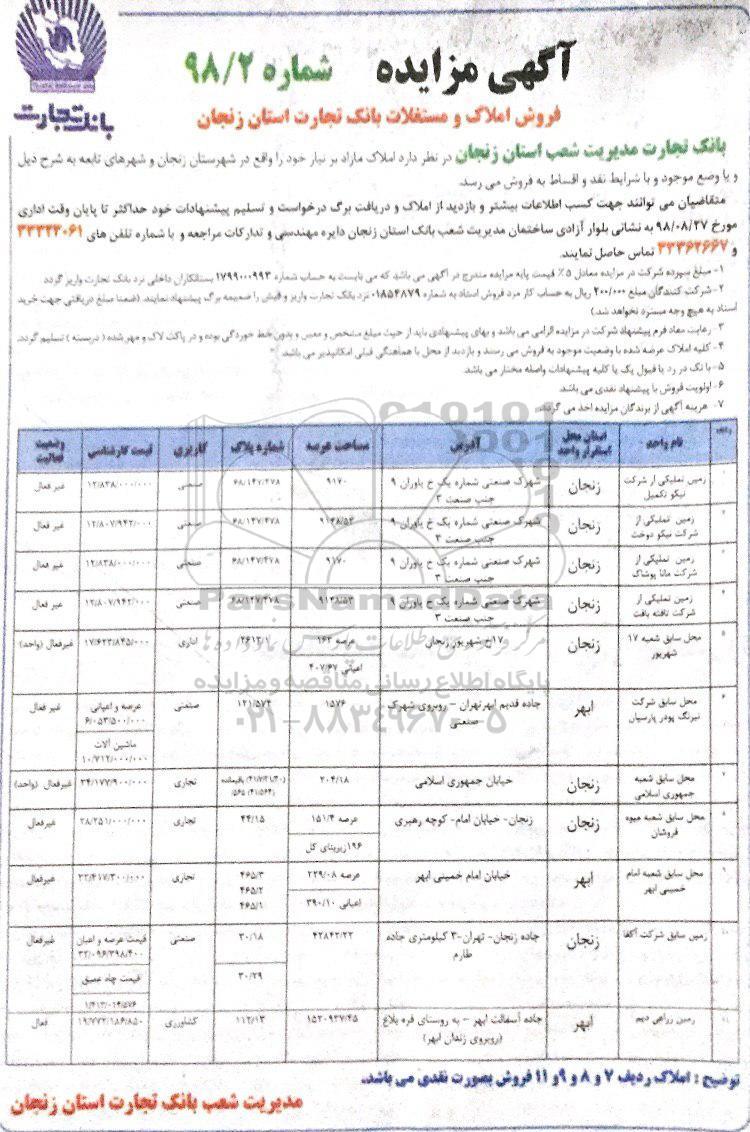 آگهی مزایده شماره ۹۸/۲
فروش املاک و مستغلات بانک تجارت استان زنجان
بانک تجارت
بانک تجارت مدیریت شعب استان زنجان در نظر دارد املاک مازاد بر نیاز خود را واقع در شهرستان زنجان و شهرهای تابعه به شرح ذیل
و با وضع موجود و با شرایط نقد و اقساط به فروش می رسد.
متقاضیان می توانند جهت کسب اطلاعات بیشتر و بازدید از املاک و دریافت برگ درخواست و تسلیم پیشنهادات خود حداکثر تا پایان وقت اداری
مورخ ۹۸/۰۸/۲۷ به نشانی بلوار آزادی ساختمان مدیریت شعب بانک استان زنجان دایره مهندسی و تدارکات مراجعه و با شماره تلفن های ۳۳۳۲۳۰۶۱
و ۳۳۳۶۲۶۶۷ تماس حاصل نمایند.
۱- مبلغ سپرده شرکت در مزایده معادل ۵٪ قیمت پایه مزایده مندرج در آگهی می باشد که می بایست به حساب شماره ۱۷۹۹۰۰۰۹۹۳ بستانکاران داخلی نزد بانک تجارت واریز گردد
۲- شرکت کنندگان مبلغ ۲۰۰/۰۰۰ ریال به حساب کار مزد فروش اسناد به شماره ۰۱۸۵۴۸۷۹ نزد بانک تجارت واریز و فیش را ضمیمه برگ پیشنهاد نمایند. (ضمنا مبلغ دریافتی جهت خرید
اسناد به هیچ وجه مسترد نخواهد شد.)
۳- رعایت مفاد فرم پیشنهاد شرکت در مزایده الزامی می باشد و بهای پیشنهادی باید از حیث مبلغ مشخص و معین و بدون خط خوردگی بوده و در پاکت لاک و مهر شده (دربسته) تسلیم گردد.
۴- کلیه املاک عرضه شده با وضعیت موجود به فروش می رسند و بازدید از محل با هماهنگی قبلی امکانپذیر می باشد
۵- بانک در رد یا قبول یک یا کلیه پیشنهادات واصله مختار می باشد
۶- اولویت فروش با پیشنهاد نقدی می باشد
۷- هزینه آگهی از برندگان مزایده اخذ می گردد.
ردیف نام واحد استان محل استقرار واحد آدرس مساحت عرصه شماره پلاک کاربری قیمت کارشناسی وضعیت فعالیت
زمین تملیکی از شرکت نیکو تکمیل زنجان شهرک صنعتی شماره یک خ یاوران ۹ جنب صنعت ۳ ۹۱۷۰ ۶۸/۱۴۷/۴۷۸ صنعتی ۱۲/۸۳۸/۰۰۰/۰۰۰ غیر فعال
۲ زمین تملیکی از شرکت نیکو دوخت زنجان شهرک صنعتی شماره یک خ یاوران ۹ جنب صنعت ۳ ۹۱۴۸/۵۳ ۶۸/۱۴۷/۴۷۸ صنعتی ۱۲/۸۰۷/۹۴۲/۰۰۰ غیر فعال
۳ زمین تملیکی از شرکت مانا پوشاک زنجان شهرک صنعتی شماره یک خ یاوران ۹ جنب صنعت ۳ ۹۱۷۰ ۶۸/۱۴۷/۴۷۸ صنعتی ۱۲/۸۳۸/۰۰۰/۰۰۰ غیر فعال
۴ زمین تملیکی از شرکت تافته بافت زنجان شهرک صنعتی شماره یک خ یاوران ۹ جنب صنعت ۳ ۹۱۴۸/۵۳ ۶۸/۱۴۷/۴۷۸ صنعتی ۱۲/۸۰۷/۹۴۲/۰۰۰ غیر فعال
۵ محل سابق شعبه ۱۷ شهریور زنجان ۱۷ شهریور زنجان عرصه ۱۶۳ اعیانی ۴۰۷/۶۷ ۲۶۱۳/۱ اداری ۱۷/۶۲۳/۸۴۵/۰۰۰ غیرفعال (واحد)
۶ محل سابق شرکت نیرنگ پودر پارسیان ابهر جاده قدیم ابهر تهران – روبروی شهرک صنعتی ۱۵۷۶ ۱۲۱/۵۷۴ صنعتی عرصه و اعیانی ۶/۰۵۳/۵۰۰/۰۰۰ ماشین آلات ۱۰/۷۱۲/۰۰۰/۰۰۰ غیر فعال
۷ محل سابق شعبه جمهوری اسلامی زنجان خیابان جمهوری اسلامی ۲۰۴/۱۸ باقیمانده تجاری ۳۴/۱۷۷/۹۰۰/۰۰۰ غیرفعال (واحد)
۸ محل سابق شعبه میوه فروشان زنجان زنجان- خیابان امام- کوچه رهبری عرصه ۱۵۱/۴ ۱۹۶ زیربنای کل ۴۴/۱۵ تجاری ۲۸/۲۵۱/۰۰۰/۰۰۰ غیرفعال
۹ محل سابق شعبه امام خمینی ابهر ابهر خیابان امام خمینی ابهر عرصه ۲۲۹/۰۸ اعیانی ۳۹۰/۱۰ ۴۶۵/۳ ۴۶۵/۲ ۴۶۵/۱ تجاری ۲۲/۴۱۷/۳۰۰/۰۰۰ غیرفعال
۱۰ زمین سابق شرکت آکفا زنجان جاده زنجان- تهران-۳ کیلومتری جاده طارم ۴۲۸۴۲/۲۲ ۳۰/۱۸ ۳۰/۲۹ صنعتی قیمت عرصه و اعیان ۳۲/۰۹۶/۳۹۸/۴۰۰ قیمت چاه عمیق ۱/۴۱۳/۰۱۴/۵۷۶ غیرفعال
۱۱ زمین زراعی دیم ابهر جاده آسفالت ابهر – به روستای قره بلاغ (روبروی زندان ابهر) ۱۵۲۰۹۳۷/۴۵ ۱۱۲/۱۳ کشاورزی ۱۹/۷۷۲/۱۸۶/۸۵۰ فعال
توضیح : املاک ردیف ۷ و ۸ و ۹ و ۱۱ فروش بصورت نقدی می باشد.
مدیریت شعب بانک تجارت استان زنجان
ParsNamadData
پایگاه اطلاع رسانی مناقصه و مزایده
۰۲۱-۸۸۳۴۹۶۷۰-۵